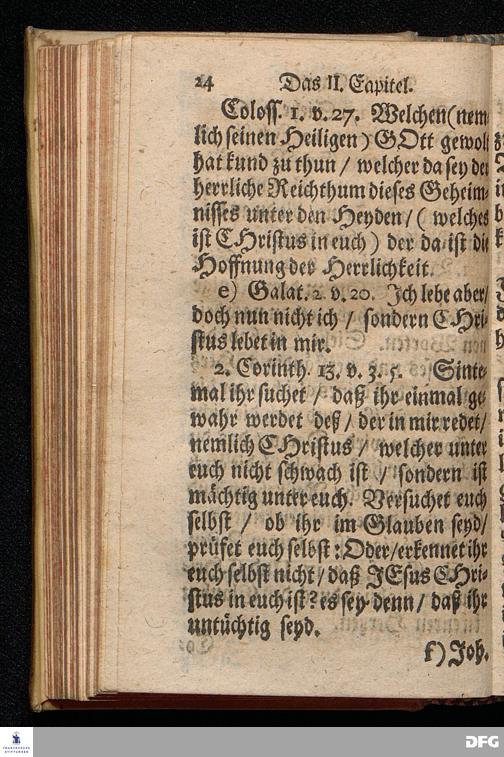 24 Das II. Capitel.
Coloss. 1. v. 27. Welchen (nem-
lich seinen Heiligen) GOtt gewolt
hat kund zu thun / welcher da sey der
herrliche Reichthum dieses Geheim-
nisses unter den Heyden / ( welches
ist CHristus in euch ) der da ist die
Hoffnung der Herrlichkeit.
e) Galat. 2. v. 20. Ich lebe aber /
doch nun nicht ich / sondern CHri-
stus lebet in mir.
2. Corinth. 13. v. 3. 5. Sinte-
mal ihr suchet / daß ihr einmal ge-
wahr werdet deß / der in mir redet /
nemlich CHristus / welcher unter
euch nicht schwach ist / sondern ist
mächtig unter euch. Versuchet euch
selbst / ob ihr im Glauben seyd /
prüfet euch selbst: Oder / erkennet ihr
euch selbst nicht / daß JEsus CHri-
stus in euch ist? es sey denn / daß ihr
untüchtig seyd.
f) Joh.
FRANCKESCHE
STIFTUNGEN
DFG